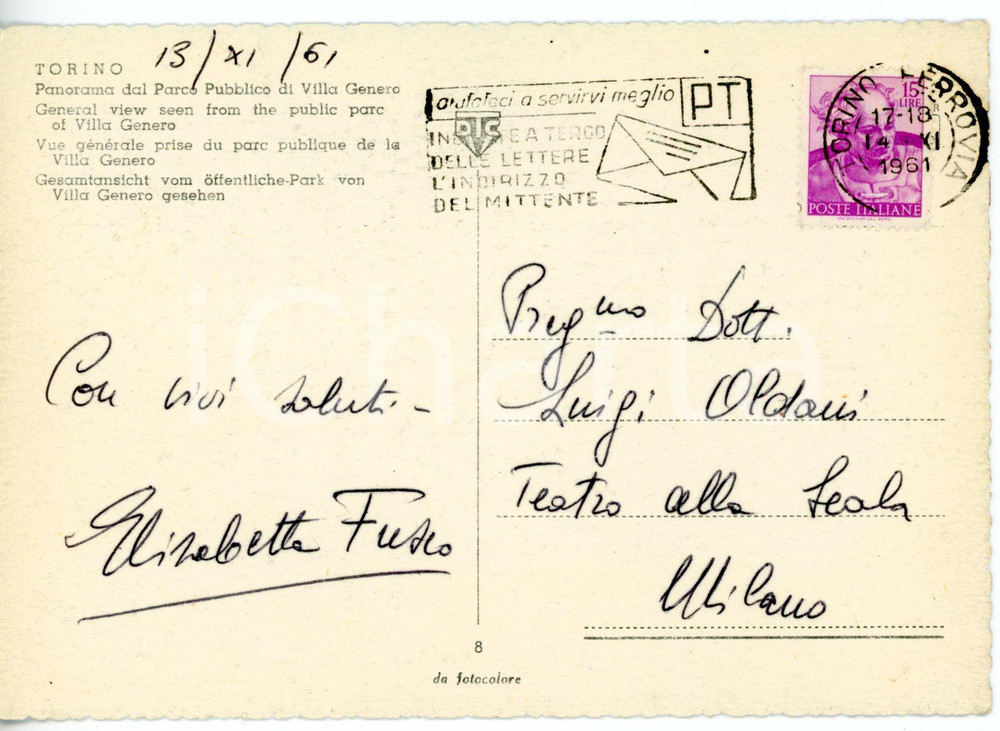 13/XI/61
TORINO
Panorama dal Parco Pubblico di Villa Genero
General view seen from the public parc
of Villa Genero
Vue générale prise du parc publique de la
Villa Genero
Gesamtansicht vom öffentliche-Park von
Villa Genero gesehen
aiutateci a servirvi meglio
PT
A TERGO
DELLE LETTERE
L'INDIRIZZO
DEL MITTENTE
15
LIRE
POSTE ITALIANE
TORINO FERROVIA
17-18
14 XI
1961
iCharta
Preg.mo Dott.
Luigi Oldani
Teatro alla Scala
Milano
Con vivi saluti -
Elisabetta Fusco
8
da fotocolore